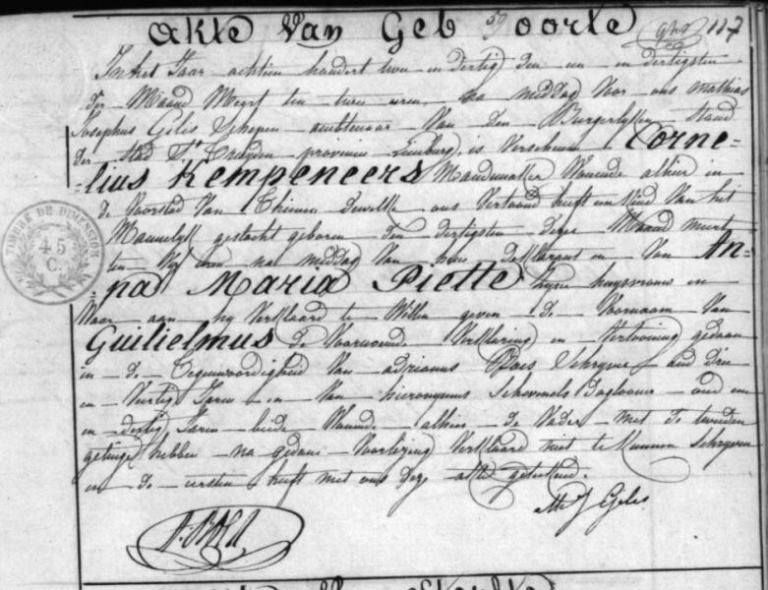 Akte Van Geb 59 oorte 117
In het Jaar achtien hondert twee en dertig den een en dertigsten
der Maand Meert ten twee uren na middag Voor ons Mathias
Josephus Gelis Schepen ambtenaar Van Den Burgerlyken Stand
Der Stad St Truyden provincie Limburg, is Verschenen Corne=
=lius Kempeneers Mandemaker Wonende alhier in
de Voorstad Van Thienen dewelke ons Vertoond heeft een Kind Van het
Mannelyk geslacht geboren den dertigsten dezer Maand meert
ten vyf uren na middag Van hem Declarant en Van An=
=na Maria Piette zyne huysvrouw en
Waar aan hy Verklaard te Willen geven de Voornaam Van
Guilielmus De Voornoemde Verklaring en Vertooning gedaan
in de Tegenwoordigheid Van adrianus Schryver oud Drie
en Veertig Jaren en Van hieronymus Daglooner oud een
en dertig Jaren beide Wonende alhier de Vader met de tweeden
getuige hebben na gedane Voorlezing Verklaard niet te kunnen Schryven
en de eersten heeft met ons dezen akte geteekend.
M J Gelis
TIMBRE DE DIMENSION
45
C.